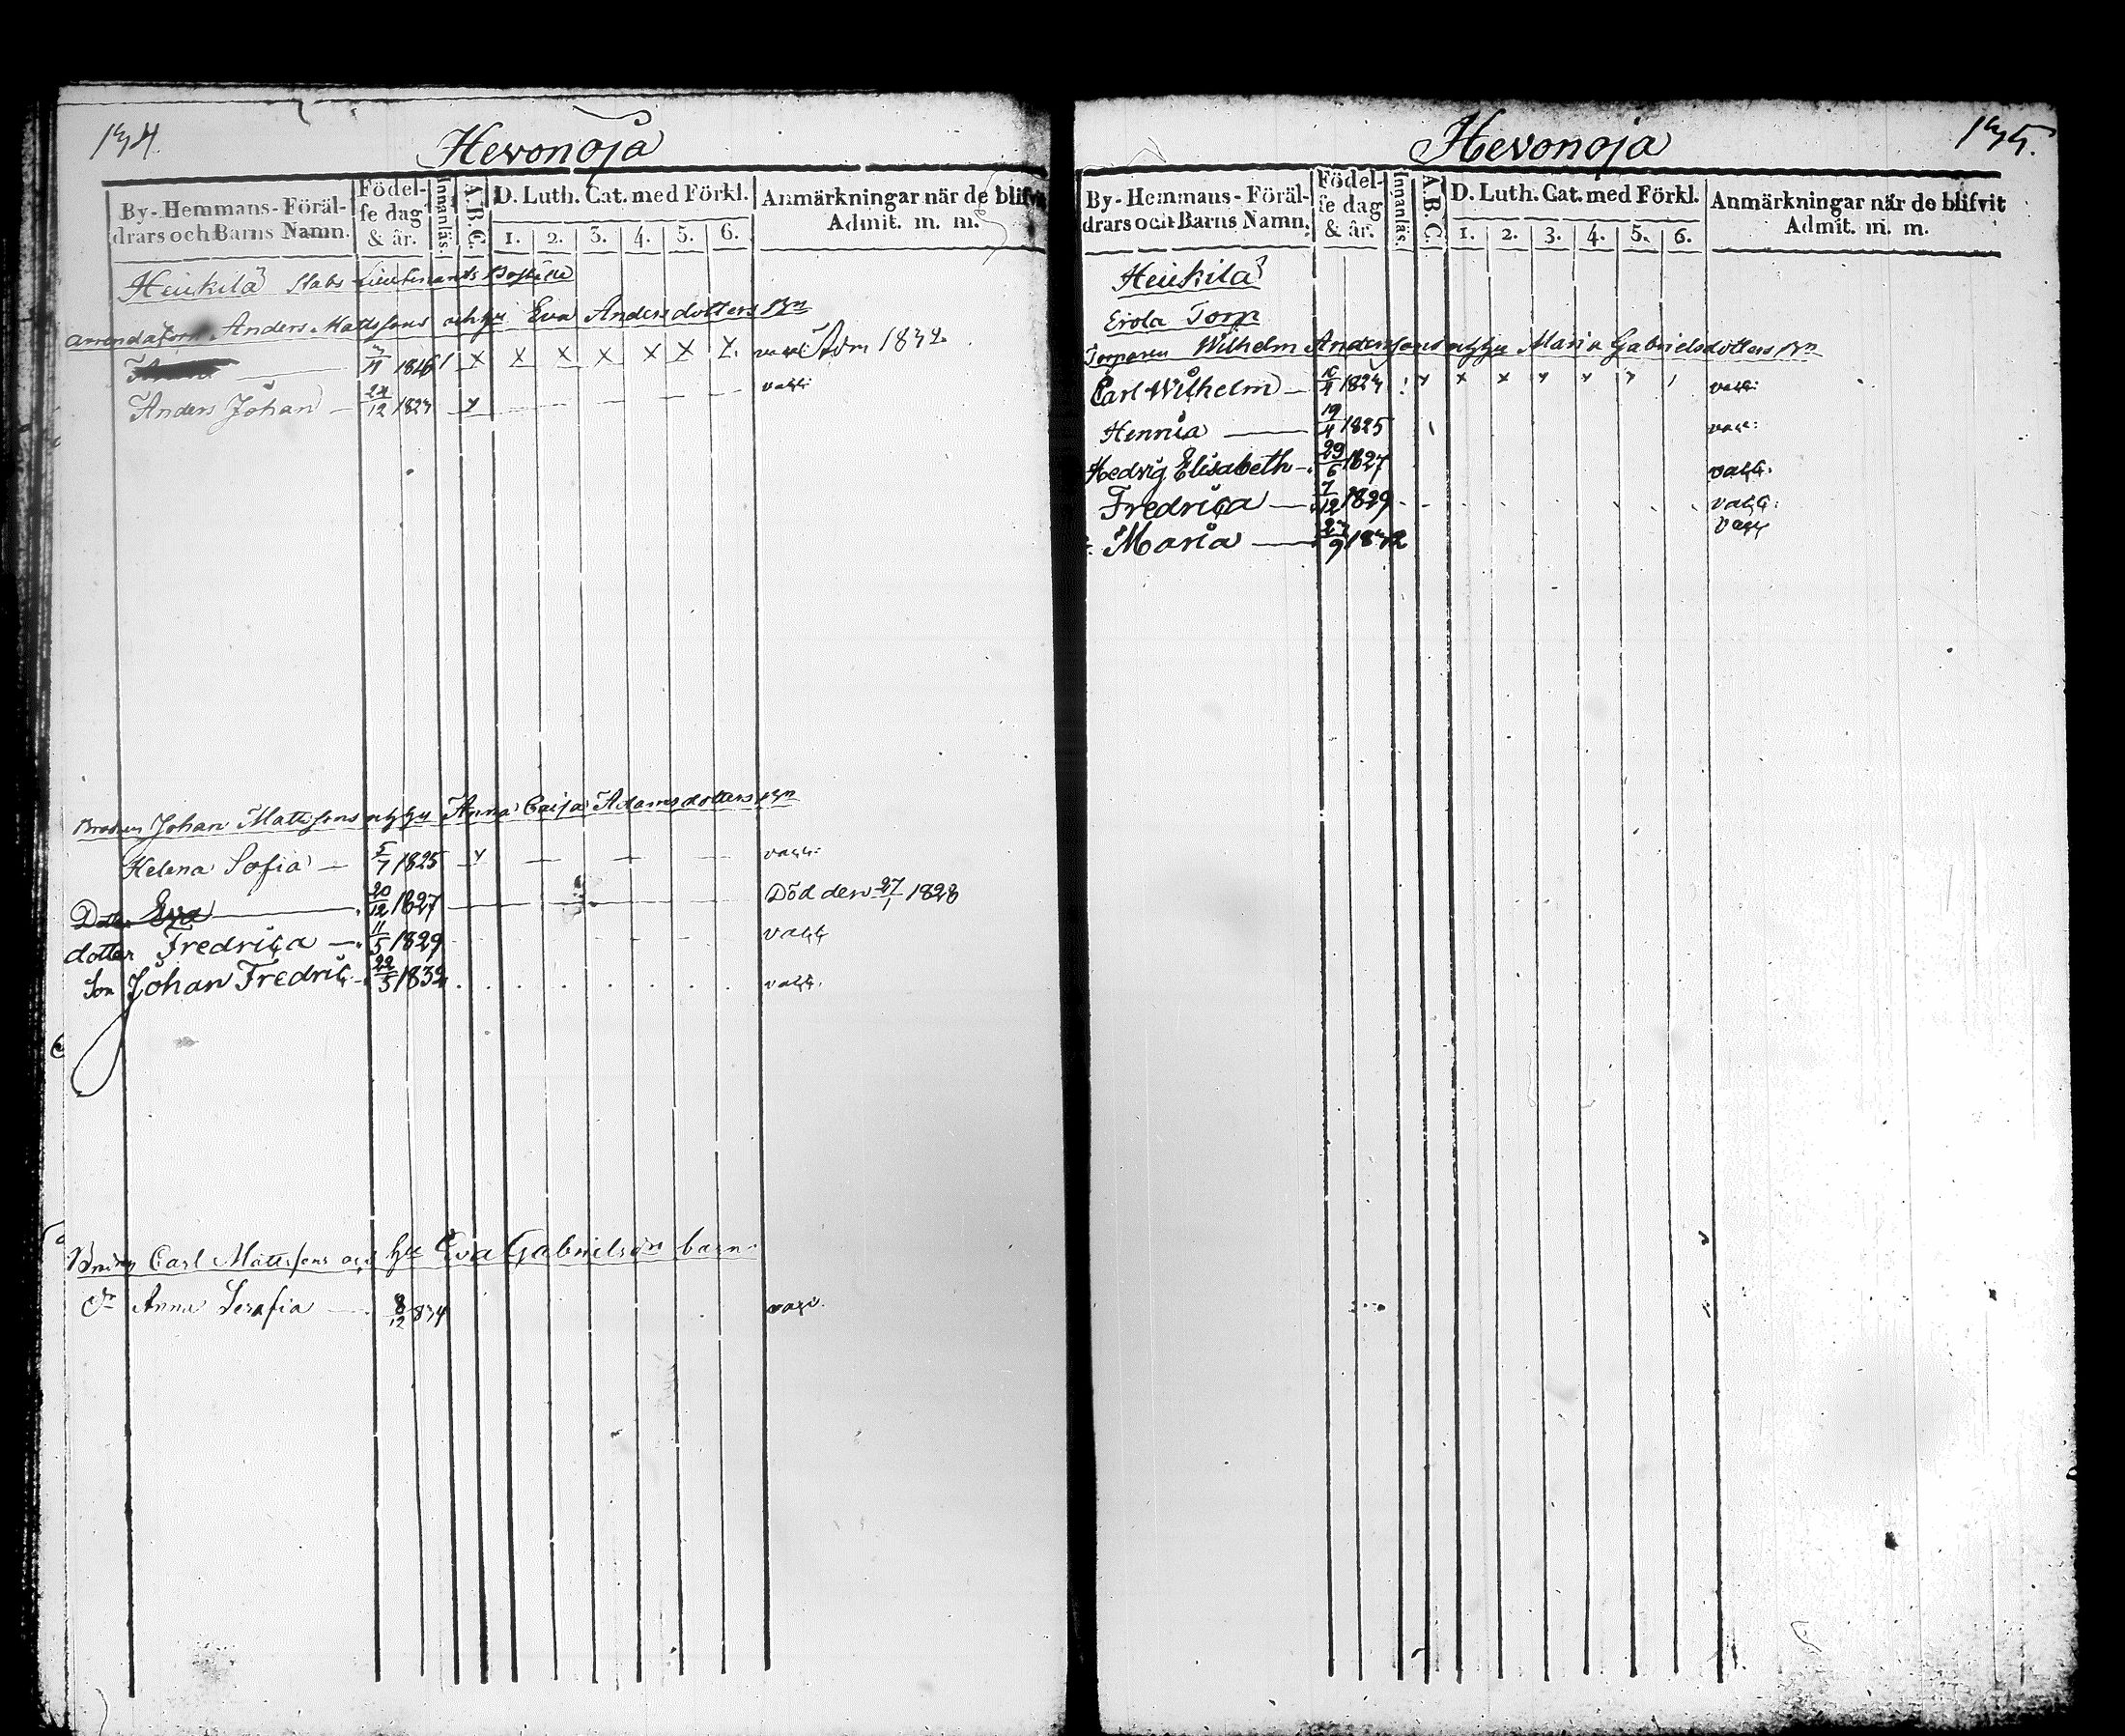 134.
Hevonoja
By-Hemmans-Föräl-
drars och Barns Namn.
Födel-
se dag
& år.
Innanläs.
A.B.C.
D. Luth. Cat. med Förkl.
1. 2. 3. 4. 5. 6.
Anmärkningar när de blifvit
Admit. m. m.
Heickilä Stabs Lieutenants Boställe
Anders Mattssons och hu Eva Andersdotters Bn
1816 / x x x x x x x. vacc: Adm 1832.
Anders Johan — 24/12 1823 x vacc:
Brodren Johan Mattssons och hu Anna Caisa Adamsdotters Bn
Helena Sofia — 5/7 1825 x vacc:
Dotter Eva — 20/12 1827 Död den 27/1 1828
dotter Fredrica — 11/5 1829 vacc
Son Johan Fredric 22/5 1832 vacc.
Carl Mattssons och hu Eva Gabrielsdn barn
Dr Anna Serafia 8/12 834 vacc.
135.
Hevonoja
By-Hemmans-Föräl-
drars och Barns Namn.
Födel-
se dag
& år.
Innanläs.
A.B.C.
D. Luth. Cat. med Förkl.
1. 2. 3. 4. 5. 6.
Anmärkningar när de blifvit
Admit. m. m.
Heickilä
Erola Torp
Torparen Wilhelm Anderssons och hu Maria Gabrielsdotters Bn
Carl Wilhelm — 1823 vacc:
Henrica — 19/4 1825 vacc:
Hedvig Elisabeth 29/6 1827 vacc.
Fredrica — 7/12 1829 vacc:
Maria — 23/9 1832 vacc